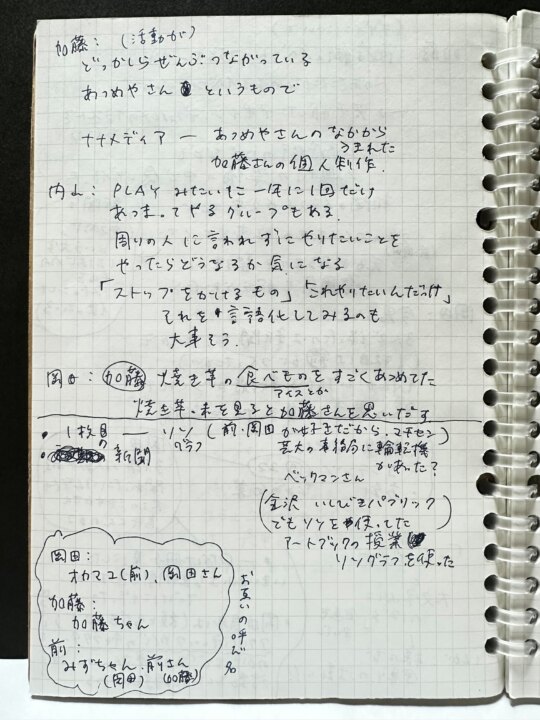 加藤：（活動が）
どっかしらぜんぶつながっている
あつめやさん というもので
ナナメディア ー あつめやさんのなかから
うまれた
加藤さんの個人制作.
内山： PLAY みたいに一年に1回だけ
あつまってやるグループもある.
周りの人に言われずにやりたいことを
やったらどうなるか気になる
「ストップをかけるもの」「これやりたいんだっけ」
それを言語化してみるのも
大事そう.
岡田： 加藤 焼き芋の食べものをすごくあつめてた
アイスとか
焼き芋味を見ると加藤さんを思いだす
・1枚目の ー リソグラフ （前・岡田が好きだから.
芸大の事務局に輪転機
があった？
・新聞
ベックマンさん
（金沢 いしびきパブリック
でもリソを使ってた）
アートブックの授業
リソグラフを使った
岡田：
オカマユ（前）、岡田さん
加藤：
加藤ちゃん
前：
みずちゃん、前さん
（岡田） （加藤）
お互いの呼び名